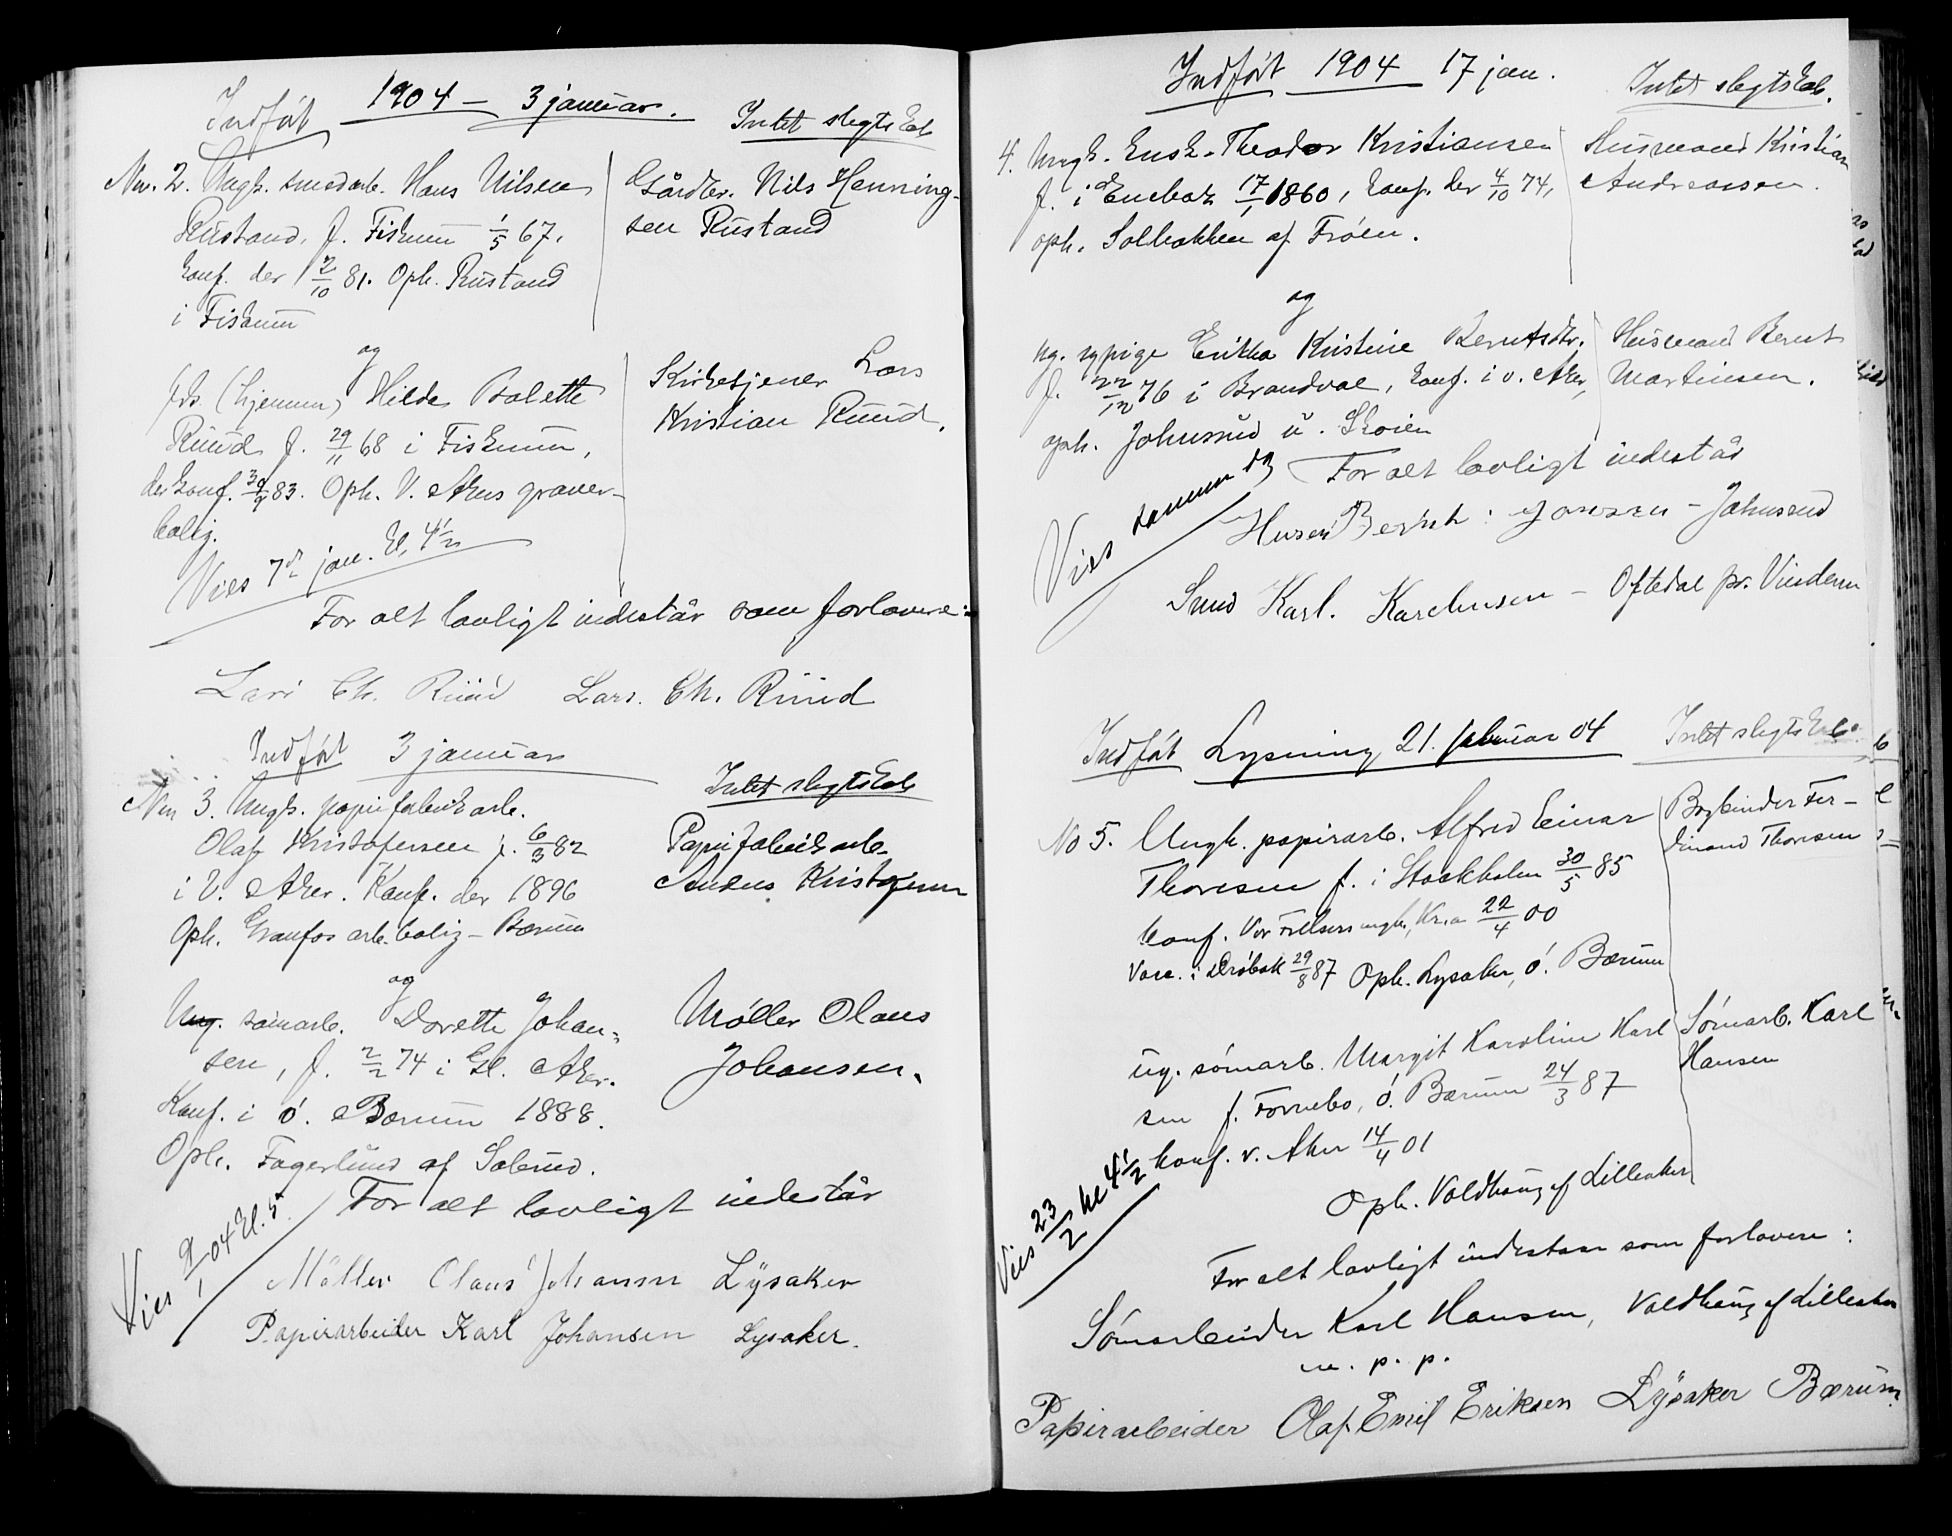 Indført 1904 — 3 januar. Intet slegtskab
No. 2. Ungk. smedarb. Hans Nilsen
Rustand, f. Fiskum 1/5 67,
konf. der 2/10 81. Oph. Rustand
i Fiskum
Gårdbr. Nils Henning-
sen Rustand
og
(hjemme) Hilda Bolette
Ruud f. 29/11 68 i Fiskum,
der konf. 30/9 83. Oph. V. Akers graver-
bolig.
Kirketjener Lars
Kristian Ruud.
Vies 7de jan. kl. 4 1/2
For alt lovligt indestår som forlovere:
Lars Ch. Ruud Lars. Ch. Ruud
Indført 3 januar
Intet slegtskab
No 3. Ungk. papirfabrikarb.
Olaf Kristofersen f. 6/3 82
i V. Aker. Konf. der 1896
Oph. Granfos arb. bolig – Bærum
Papirfabrikarb.
Kristofersen
og
Ung. sømarb. Dorette Johan-
sen, f. 2/2 74 i Gl. Aker.
Konf. i ø. Bærum 1888.
Oph. Fagerlund af Solerud.
Møller Olaus
Johansen.
Vies 9/1 04 kl. 5
For alt lovligt indestår
Møller Olaus Johansen Lysaker
Papirarbeider Karl Johansen Lysaker.
Indført 1904 17 jan.
Intet slegtskab.
4. Ungk. Theodor Kristiansen
f. i Enebak 17/1 1860, konf. der 4/10 74,
oph. Solbakken af Frøen.
Husmand Kristian
Andreassen.
og
pg. sypige Erikka Kristine Berntsdtr.
f. 22/12 76 i Brandval, konf. i v. Aker,
oph. Johnsrud u. Skøien
Husmand Bernt
Martinsen.
Vies samme dg
For alt lovligt indestår
Bernt: Jonsen – Johnsrud
Smed Karl. Karelinsen – Oftedal pr. Vinderen
Indført Lysning 21. februar 04 Intet slegtskab
No 5. Ungk. papirarb. Alfred Einar
Thoresen f. i Stockholm 30/5 85
konf. Vor Frelsers mgh., Kr.a 22/4 00
Vacc. i Drøbak 29/8 87 Oph. Lysaker, ø. Bærum
Bogbinder Fer-
dinand Thoresen
ug. sømarb. Margit Karoline Karl
sen f. Fornebo, ø. Bærum 24/3 87
konf. v. Aker 14/4 01
Oph. Voldhaug af Lilleaker
Sømarb. Karl
Hansen
Vies 23/2 kl 4 1/2
For alt lovligt indestaar som forlovere:
Sømarbeider Karl Hansen, Voldhaug af Lilleaker
m. p. p.
Papirarbeider Olaf Emil Eriksen Lysaker Bærum.